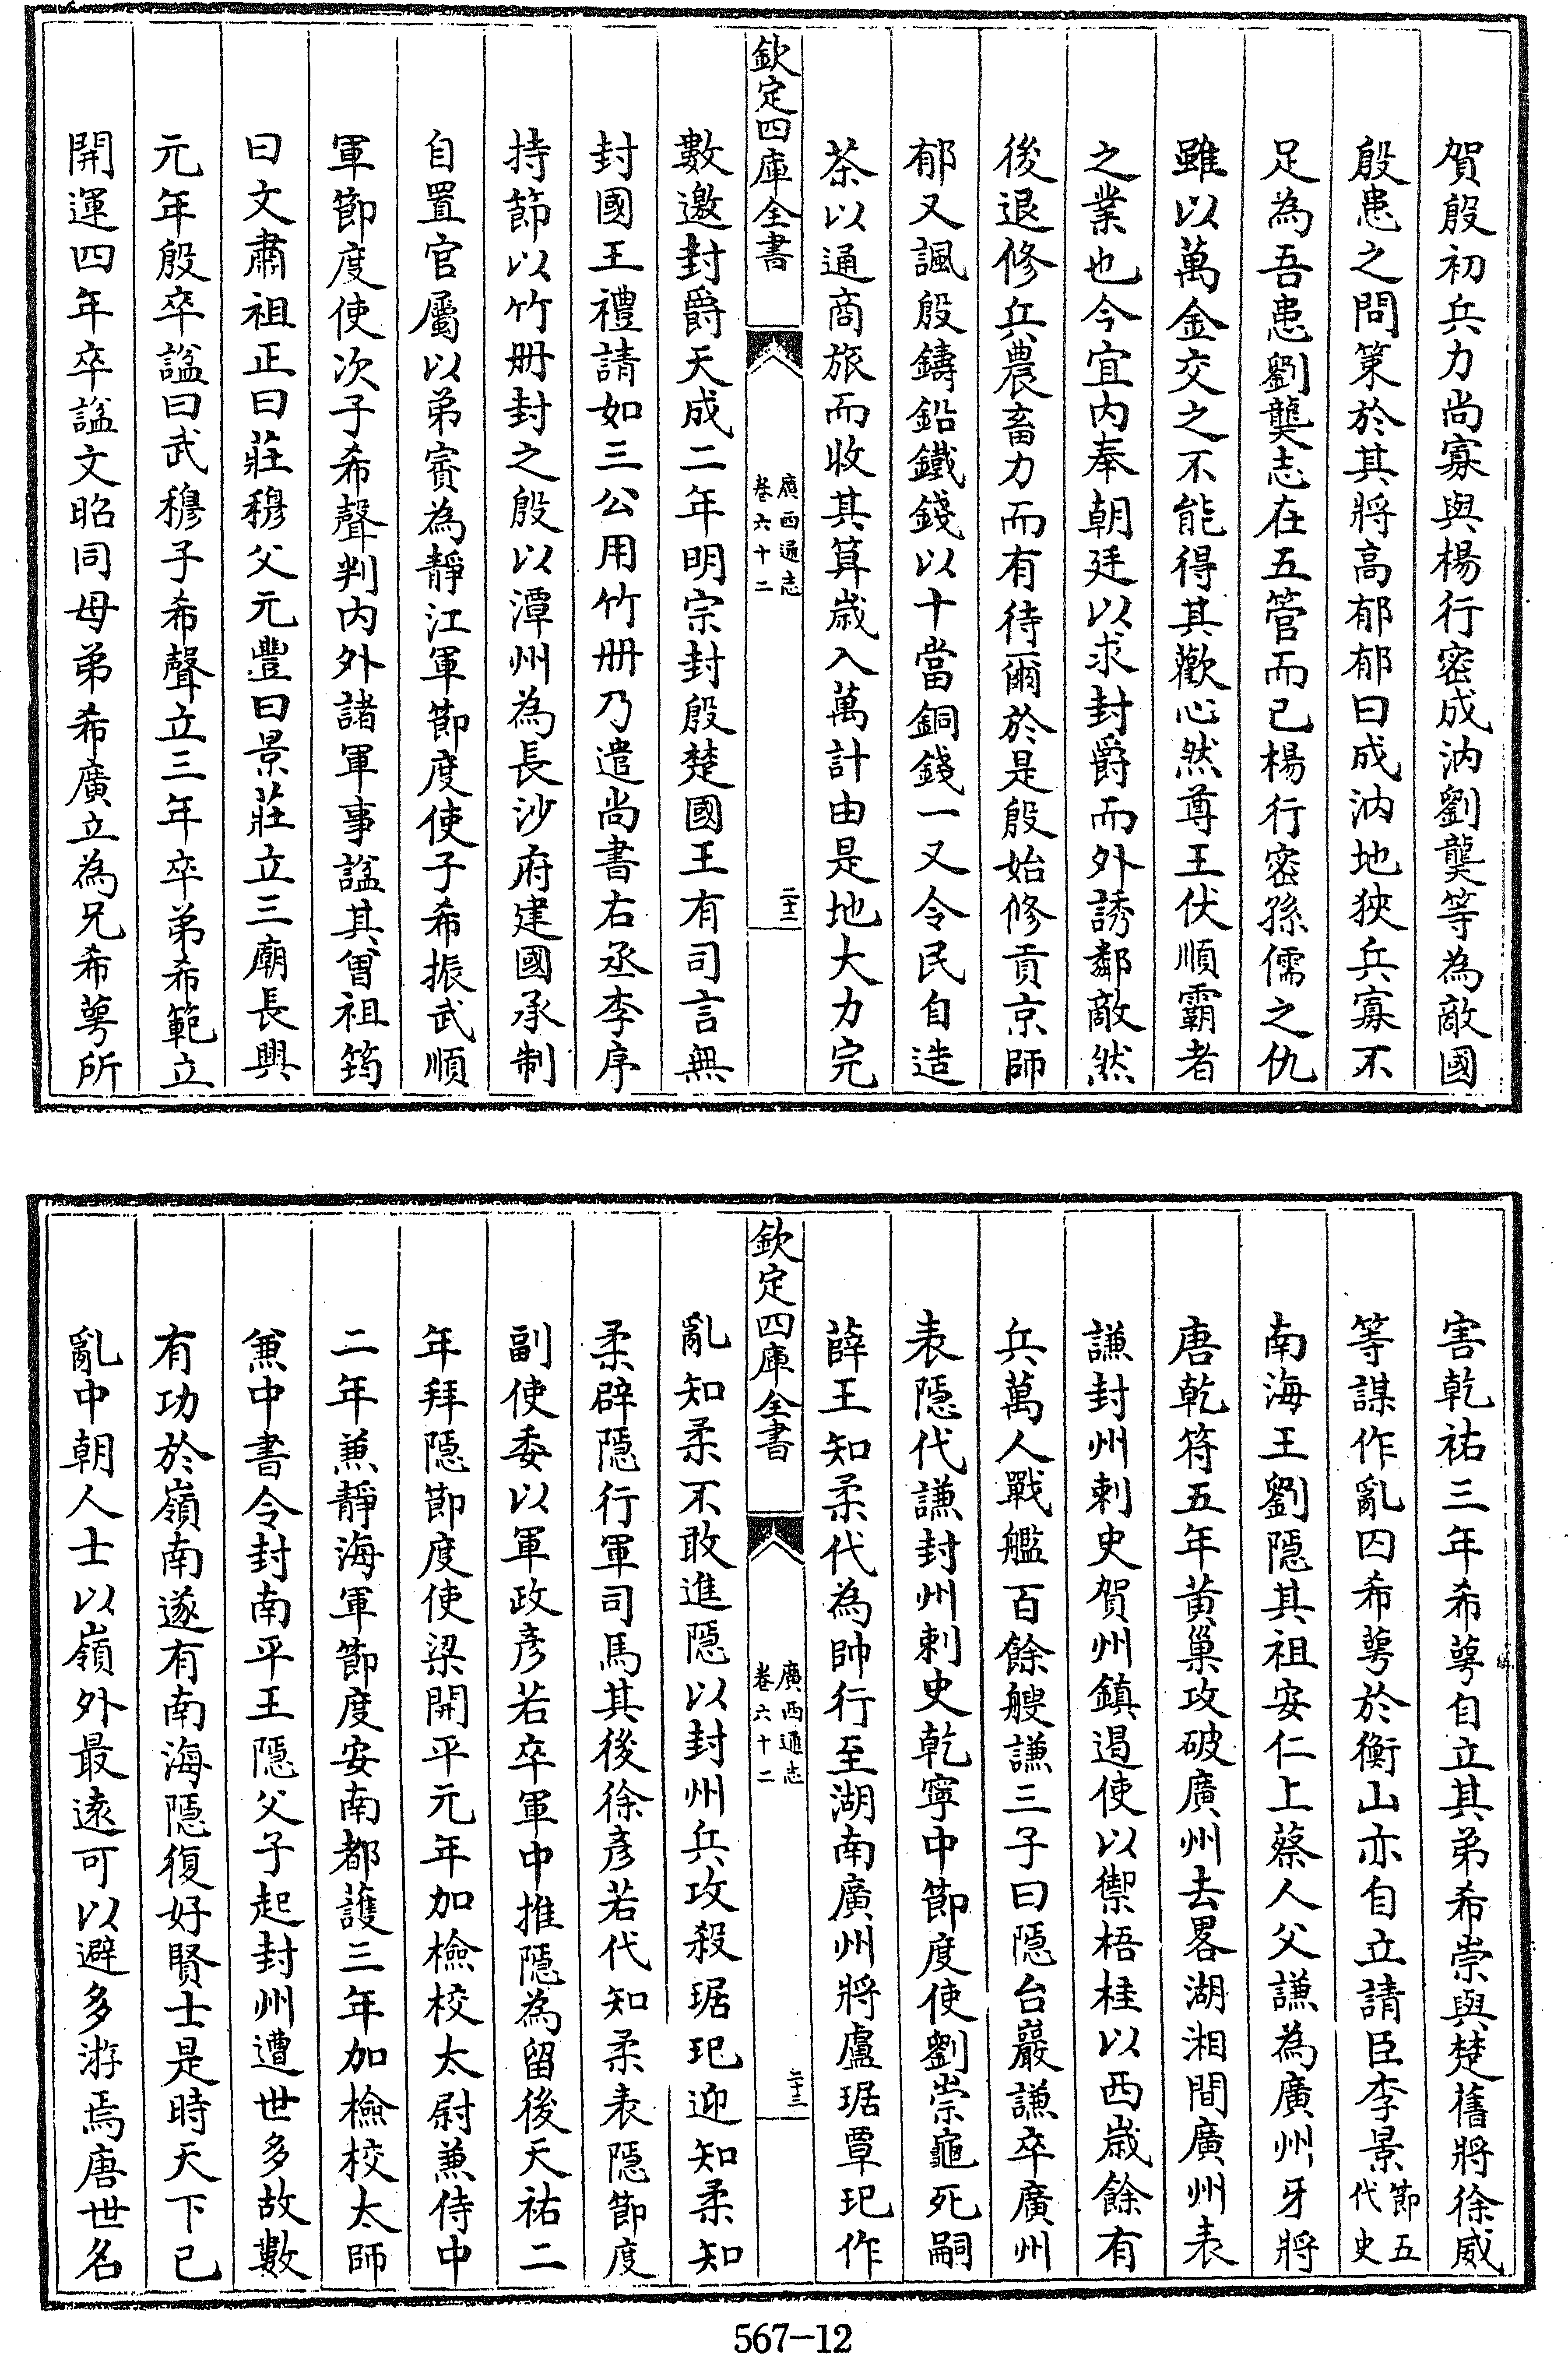 賀殷初兵力尚寡與楊行密成汭劉龑等為敵國
殷患之問策於其將高郁郁曰成汭地狹兵寡不
足為吾患劉龑志在五管而已楊行密孫儒之仇
雖以萬金交之不能得其歡心然尊王伏順霸者
之業也今宜内奉朝廷以求封爵而外誘鄰敵然
後退修兵農畜力而有待爾於是殷始修貢京師
郁又諷殷鑄鉛鐵錢以十當銅錢一又令民自造
茶以通商旅而收其算歲入萬計由是地大力完
欽定四庫全書
廣西通志
卷六十二
二十二
數邀封爵天成二年明宗封殷楚國王有司言無
封國王禮請如三公用竹册乃遣尚書右丞李序
持節以竹册封之殷以潭州為長沙府建國承制
自置官屬以弟賓為靜江軍節度使子希振武順
軍節度使次子希聲判内外諸軍事諡其曾祖筠
曰文肅祖正曰莊穆父元豐曰景莊立三廟長興
元年殷卒諡曰武穆子希聲立三年卒弟希範立
開運四年卒諡文昭同母弟希廣立為兄希萼所
害乾祐三年希萼自立其弟希崇與楚舊將徐威
等謀作亂囚希萼於衡山亦自立請臣李景節五代史
南海王劉隱其祖安仁上蔡人父謙為廣州牙將
唐乾符五年黃巢攻破廣州去畧湖湘間廣州表
謙封州刺史賀州鎮遏使以禦梧桂以西歲餘有
兵萬人戰艦百餘艘謙三子曰隱台巖謙卒廣州
表隱代謙封州刺史乾寧中節度使劉崇龜死嗣
薛王知柔代為帥行至湖南廣州將盧琚覃玘作
欽定四庫全書
廣西通志
卷六十二
二十三
亂知柔不敢進隱以封州兵攻殺琚玘迎知柔知
柔辟隱行軍司馬其後徐彦若代知柔表隱節度
副使委以軍政彦若卒軍中推隱為留後天祐二
年拜隱節度使梁開平元年加檢校太尉兼侍中
二年兼靜海軍節度安南都護三年加檢校太師
兼中書令封南平王隱父子起封州遭世多故數
有功於嶺南遂有南海隱復好賢士是時天下已
亂中朝人士以嶺外最遠可以避多游焉唐世名
567-12